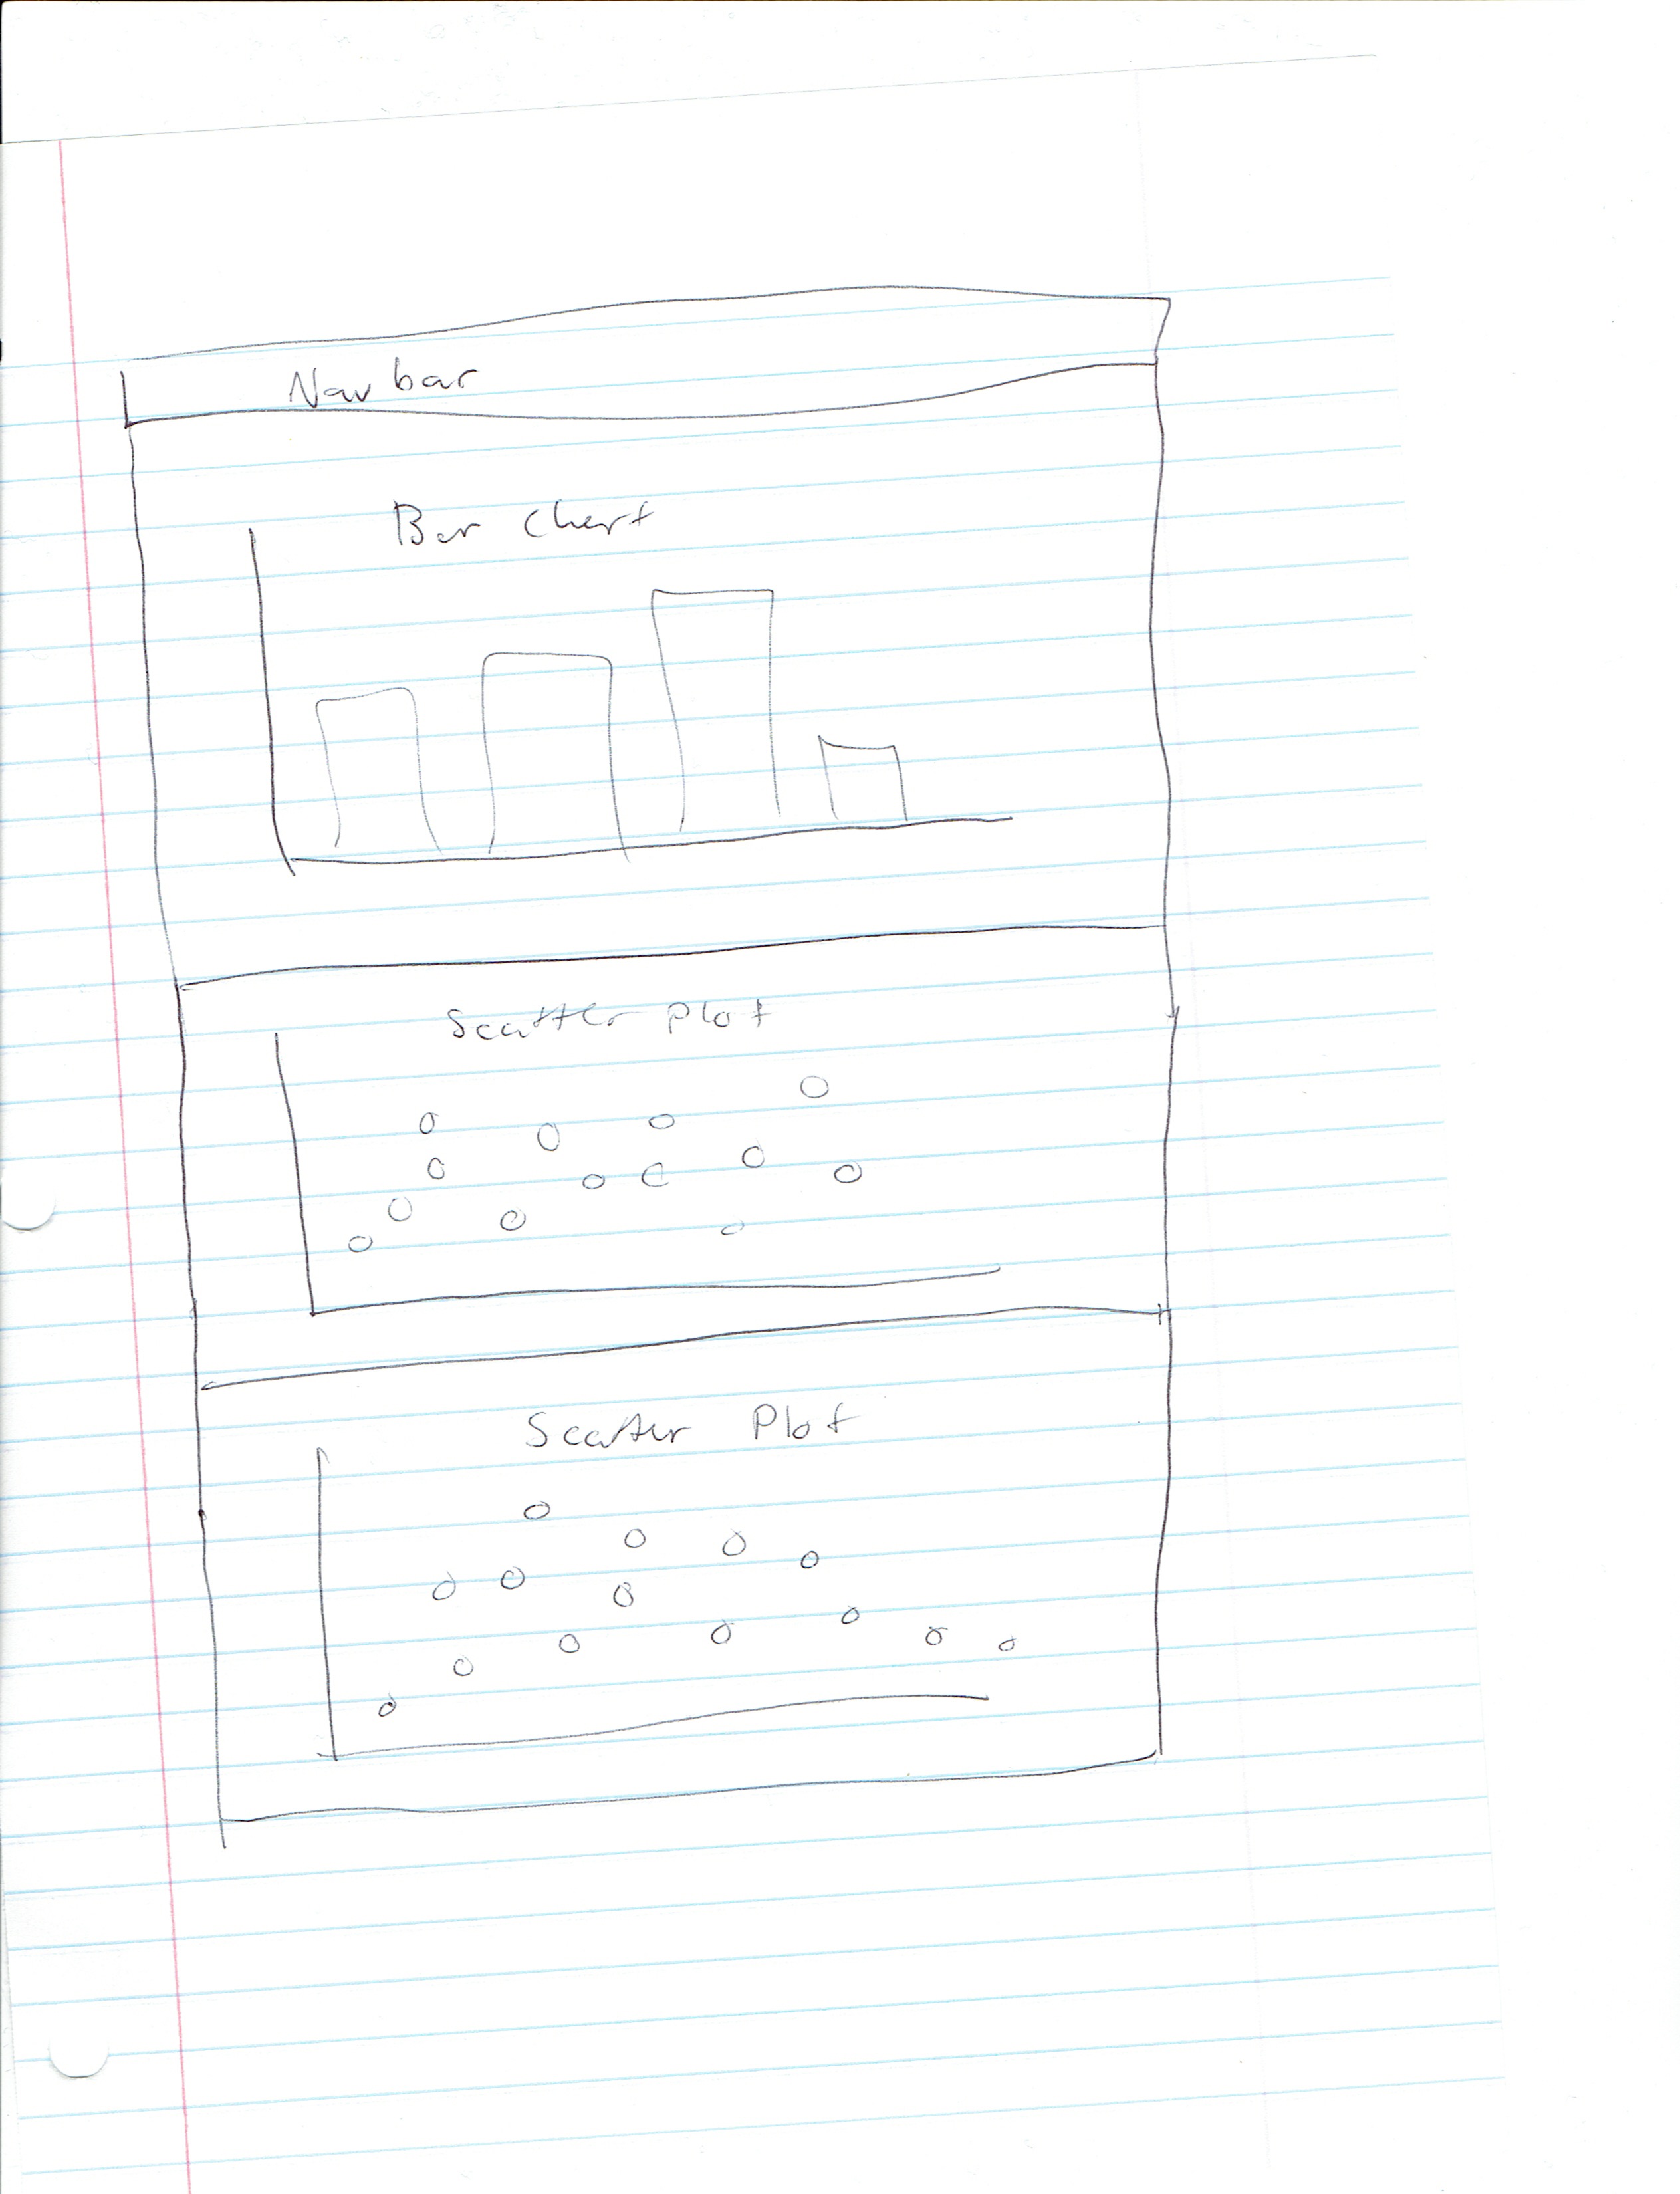 Nav bar
Bar Chart
Scatter Plot
Scatter Plot